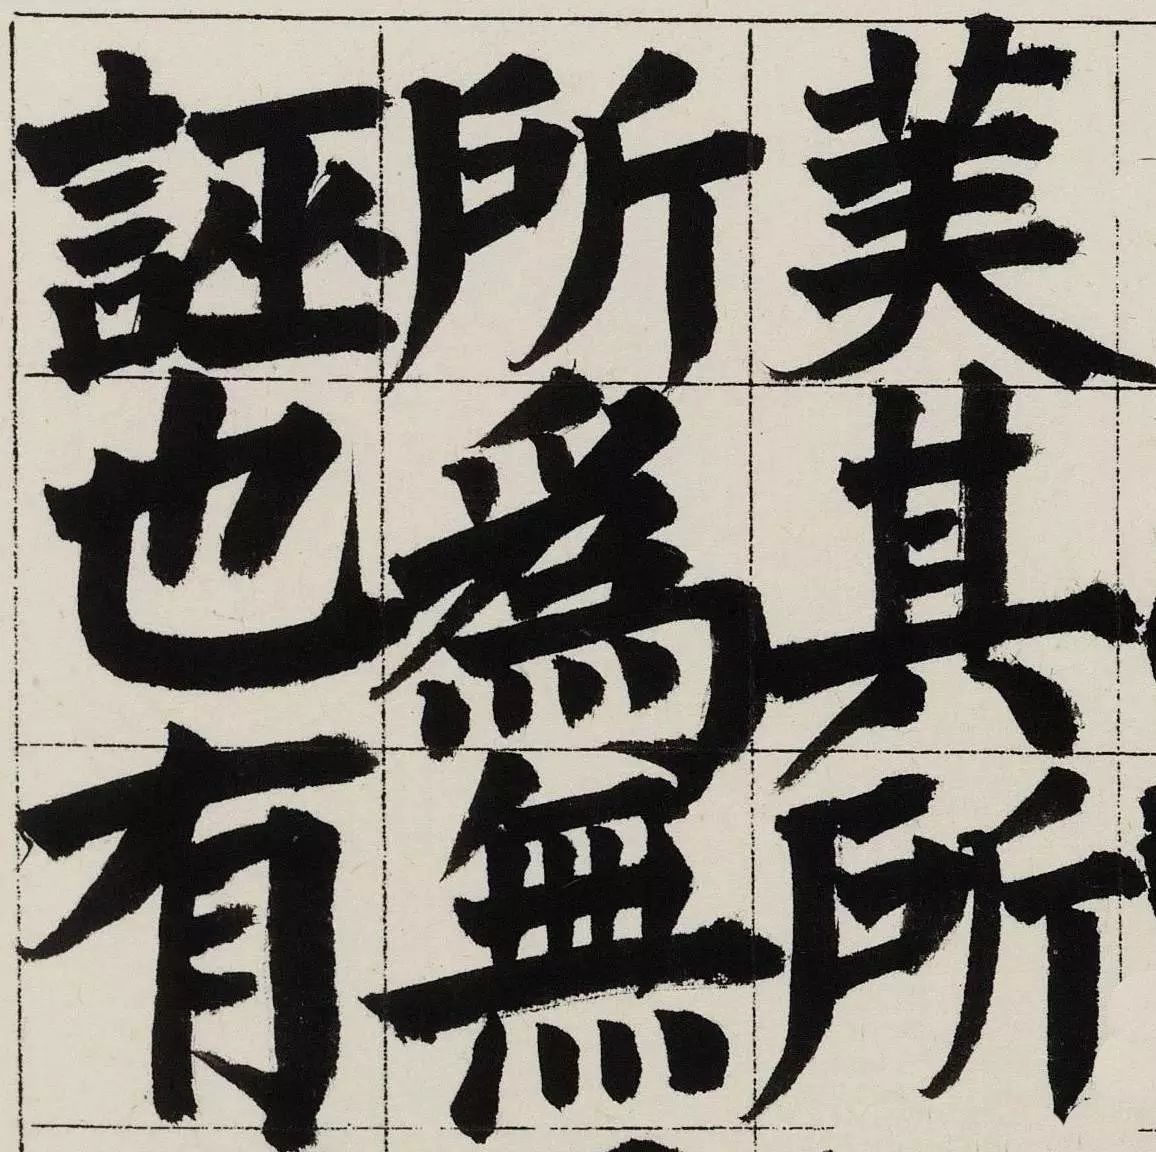 美其所
所為無
誣也有